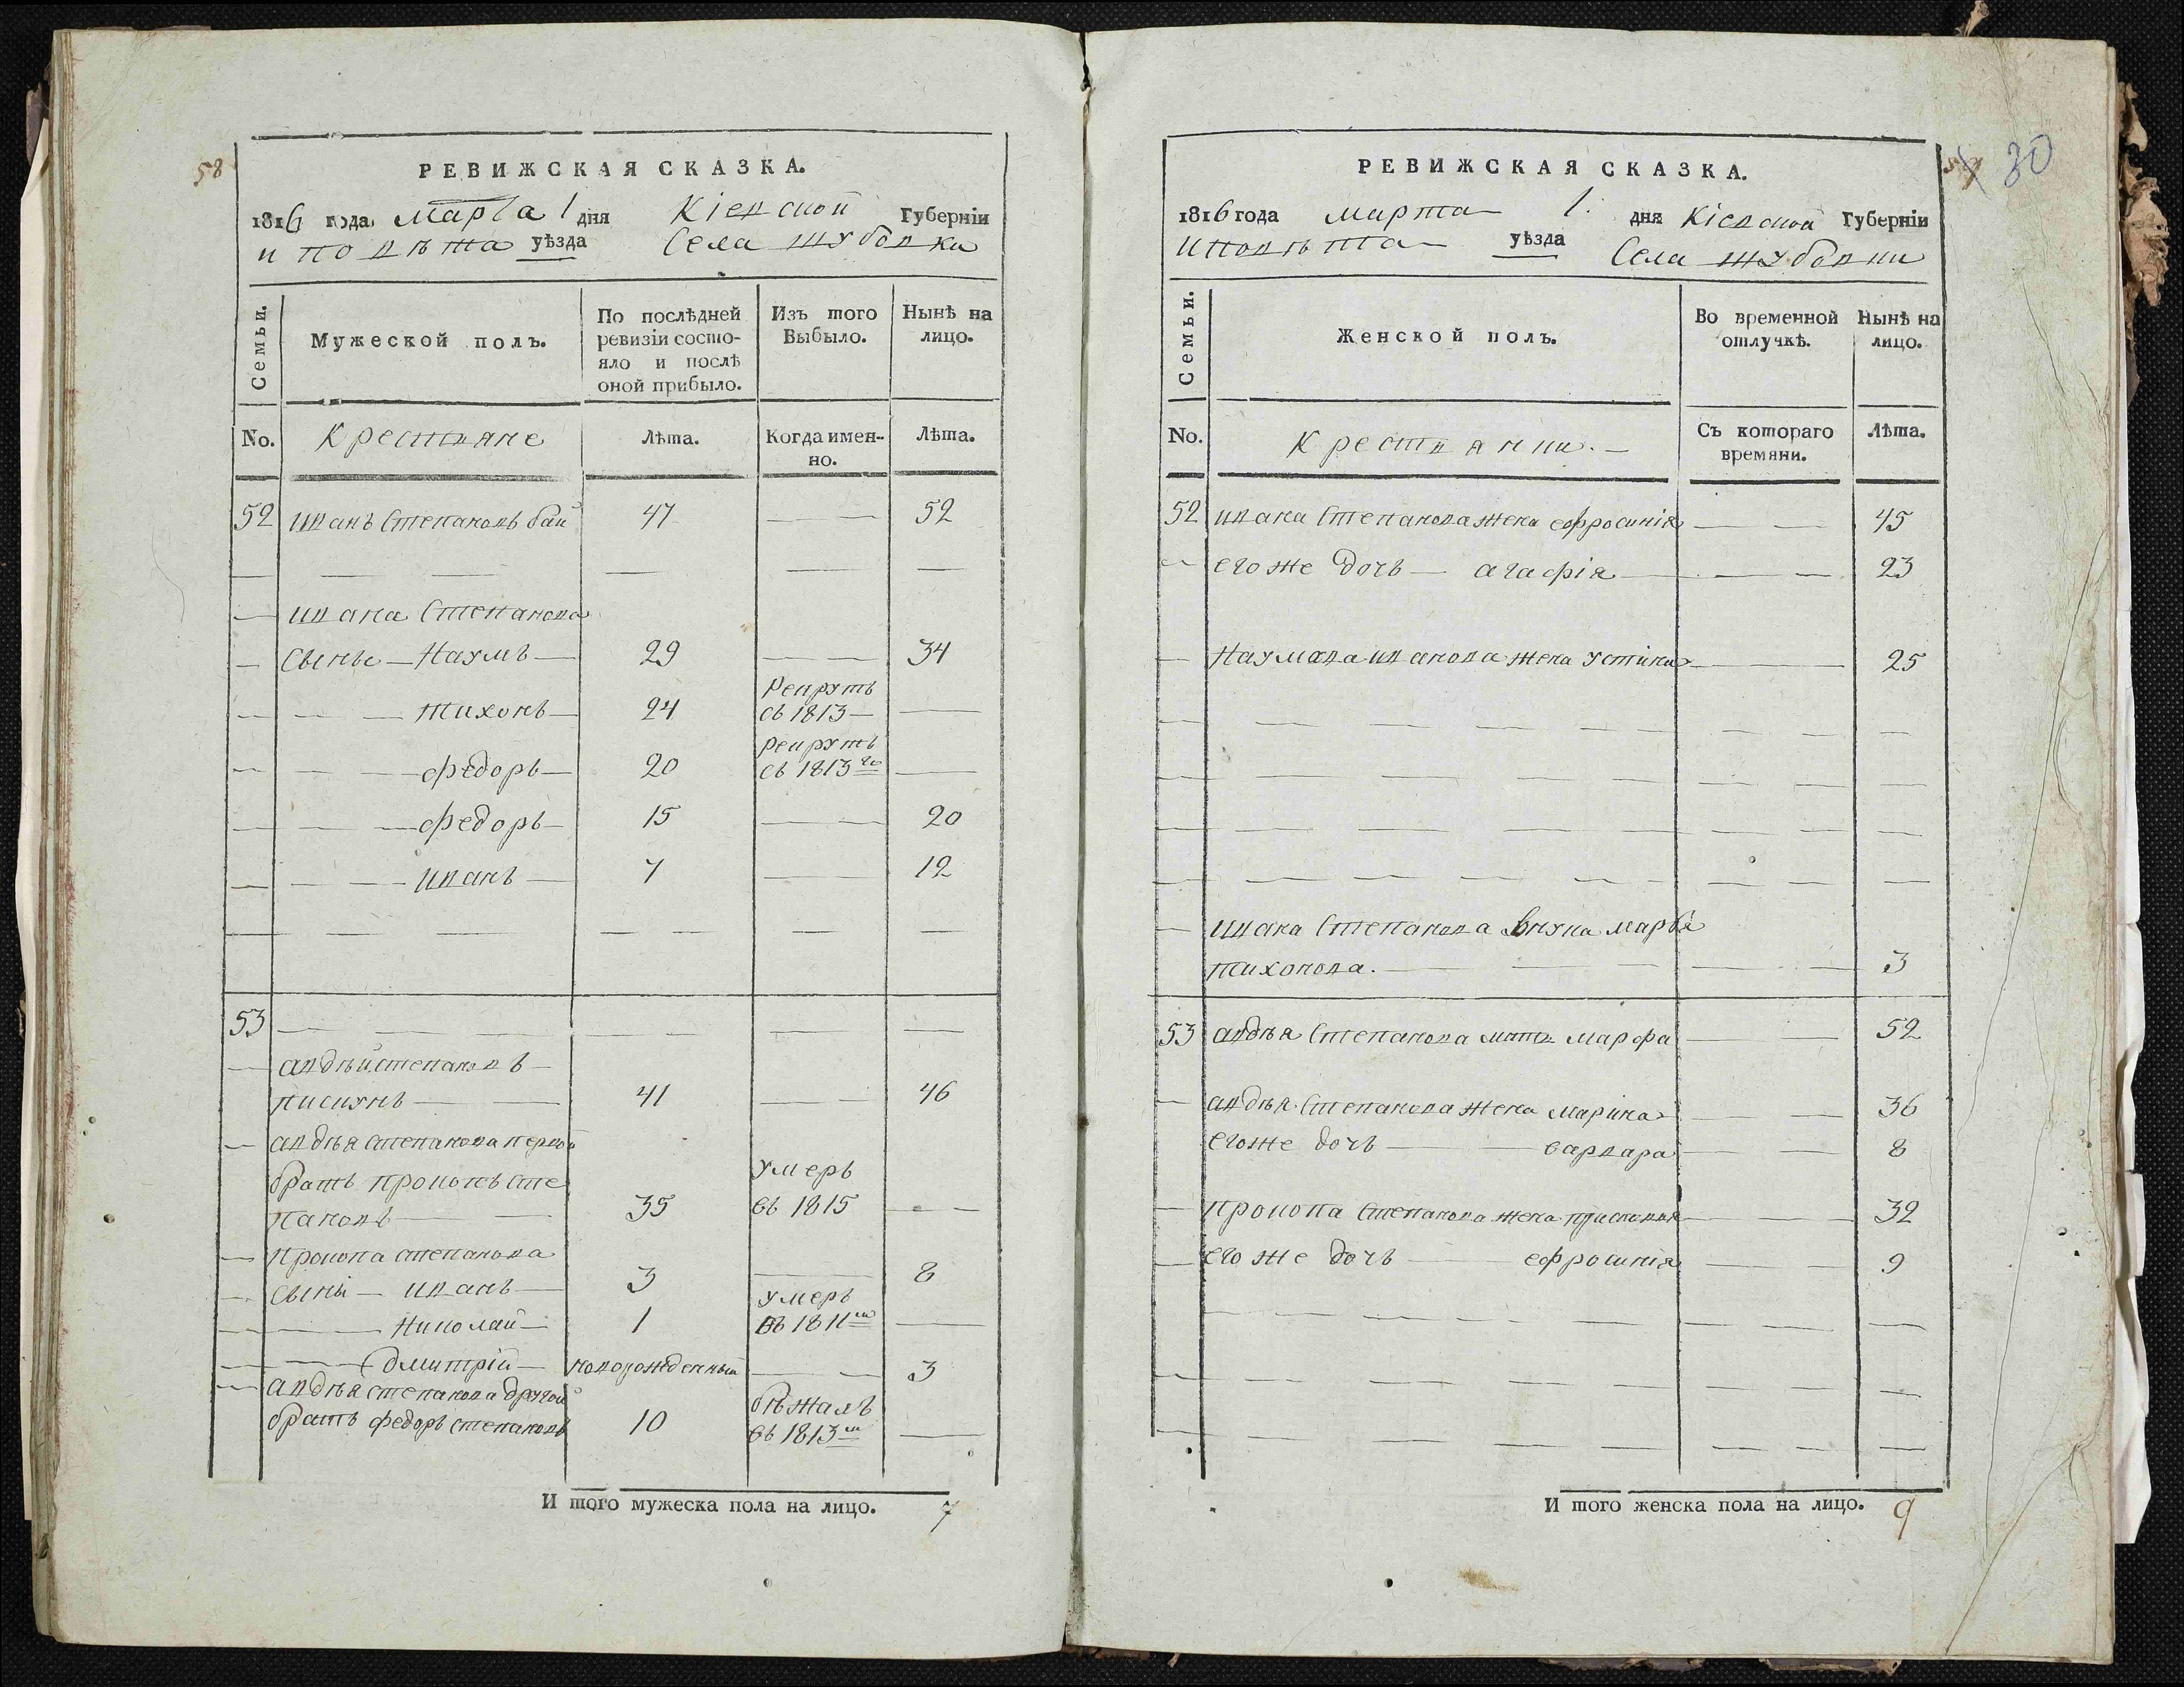 58
РЕВИЖСКАЯ СКАЗКА.
1816 года марта 1 дня Кіевской Губерніи
и повѣта уѣзда Села Жубовки
Семьи.
Мужеской полъ.
По послѣдней ревизіи состо-
яло и послѣ
оной прибыло.
Изъ того
Выбыло.
Нынѣ на
лицо.
No.
Крестьяне
Лѣта.
Когда имен-
но.
Лѣта.
52 иванъ Степановъ бай 47 — — 52
— ивана Степанова
— Сыны — Наумъ — 29 — 34
рекрутъ
— — — тихонъ — 24 съ 1813 — —
рекрутъ
— — — федоръ — 20 съ 1813 го —
— — — федоръ — 15 — 20
— — — иванъ — 7 — 12
53
— авдѣй степановъ —
пискунъ — 41 — — 46
— авдѣя степанова первой
братъ прокопъ сте
умеръ
пановъ — 35 въ 1815 — —
— прокопа степанова
— сыны — иванъ — 3 — 8
умеръ
— — николай — 1 въ 1811 м —
— — дмитрій — новорожденный — — 3
— авдѣя степанова другой
бѣжалъ
братъ федоръ степановъ 10 въ 1813 м —
И того мужеска пола на лицо. 7
30
РЕВИЖСКАЯ СКАЗКА.
1816 года марта 1. дня Кіевской Губерніи
и повѣта уѣзда Села Жубовки
Семьи.
Женской полъ.
Во временной
отлучкѣ.
Нынѣ на
лицо.
No.
Крестьянки. —
Съ котораго
времяни.
Лѣта.
52 ивана Степанова жена ефросинія — — 45
— его же дочъ — агафія — — — 23
— Наумова иванова жена устинія — — 25
— ивана Степанова внука марья
тихонова. — — — — 3
53 авдѣя Степанова мать марфа — — 52
— авдѣя Степанова жена марина — — 36
егоже дочъ — варвара — — 8
— прокопа Степанова жена прасковія — — 32
— его же дочъ — ефросинія — — 9
И того женска пола на лицо. 9